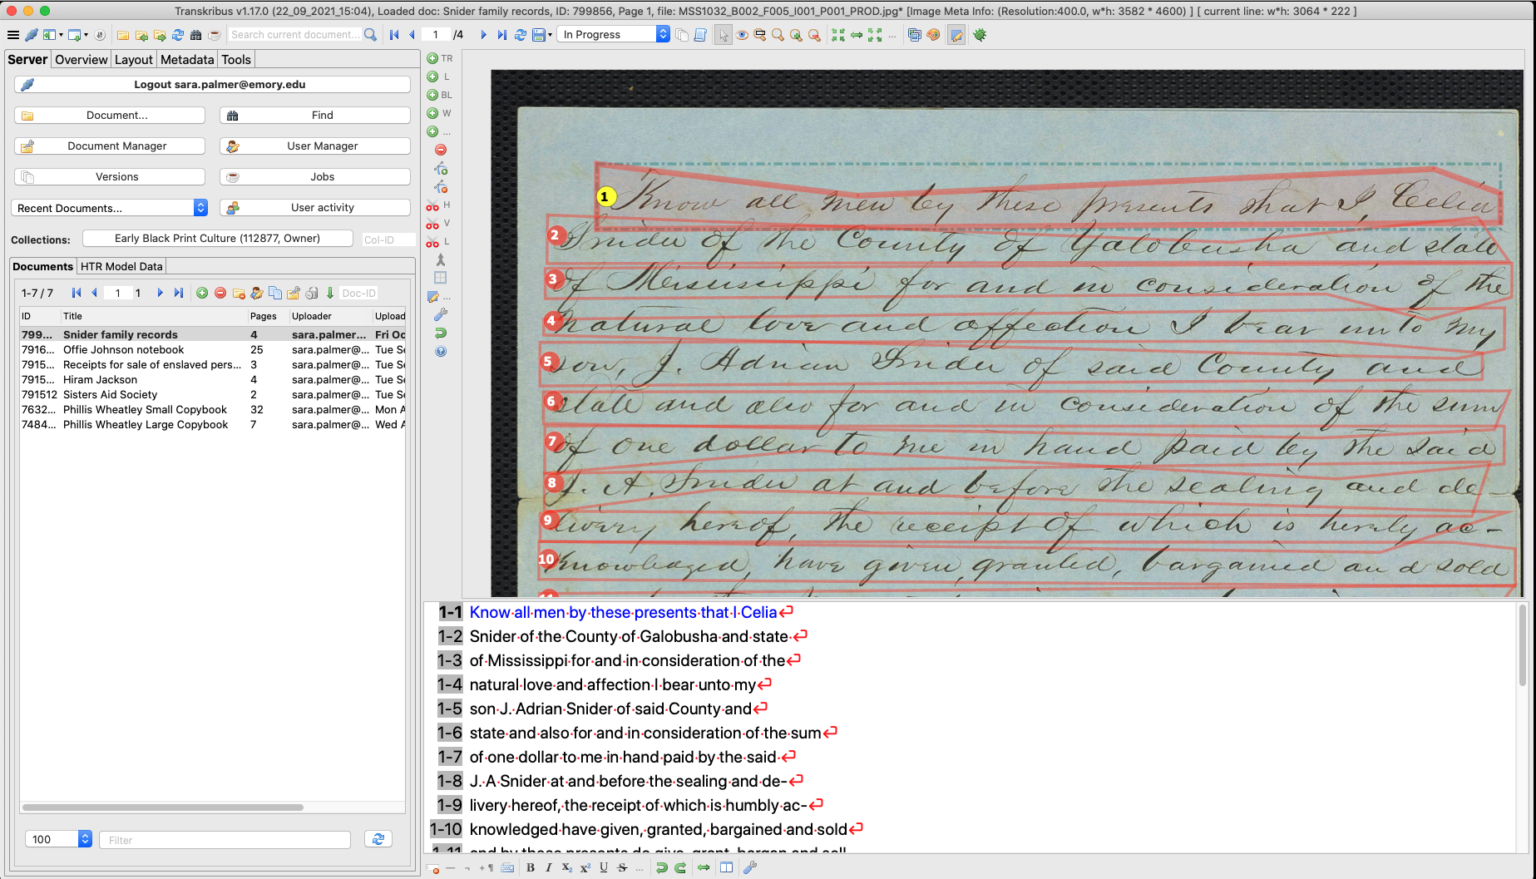 Transkribus v1.17.0 (22_09_2021_15:04), Loaded doc: Snider family records, ID: 799856, Page 1, file: MSS1032_B002_F005_I001_P001_PROD.jpg* [Image Meta Info: (Resolution:400.0, w*h: 3582 * 4600) ] [ current line: w*h: 3064 * 222 ]
Search current document... 1 /4 In Progress
Server Overview Layout Metadata Tools
Logout sara.palmer@emory.edu
Document... Find
Document Manager User Manager
Versions Jobs
Recent Documents... User activity
Collections: Early Black Print Culture (112877, Owner) Col-ID
Documents HTR Model Data
1-7 / 7 1 1 Doc-ID
ID Title Pages Uploader Upload
799... Snider family records 4 sara.palmer... Fri Oc
7916... Offie Johnson notebook 25 sara.palmer@... Tue Se
7915... Receipts for sale of enslaved pers... 3 sara.palmer@... Tue Se
7915... Hiram Jackson 4 sara.palmer@... Tue Se
791512 Sisters Aid Society 2 sara.palmer@... Tue Se
7632... Phillis Wheatley Small Copybook 32 sara.palmer@... Mon A
7484... Phillis Wheatley Large Copybook 7 sara.palmer@... Wed A
100 Filter
TR
L
BL
W
...
H
V
L
...
1 Know all men by these presents that I, Celia
2 Snider of the County of Yalobusha and state
3 of Mississippi for and in consideration of the
4 natural love and affection I bear unto my
5 son, J. Adrian Snider of said County and
6 state and also for and in consideration of the sum
7 of one dollar to me in hand paid by the said
8 J. A. Snider at and before the sealing and de-
9 livery hereof, the receipt of which is hereby ac-
10 knowledged, have given, granted, bargained and sold
1-1 Know all men by these presents that I Celia
1-2 Snider of the County of Galobusha and state
1-3 of Mississippi for and in consideration of the
1-4 natural love and affection I bear unto my
1-5 son J. Adrian Snider of said County and
1-6 state and also for and in consideration of the sum
1-7 of one dollar to me in hand paid by the said
1-8 J. A Snider at and before the sealing and de-
1-9 livery hereof, the receipt of which is humbly ac-
1-10 knowledged have given, granted, bargained and sold
1-11 and by these presents do give, grant, bargan and sell
B I X₂ X² U S ...